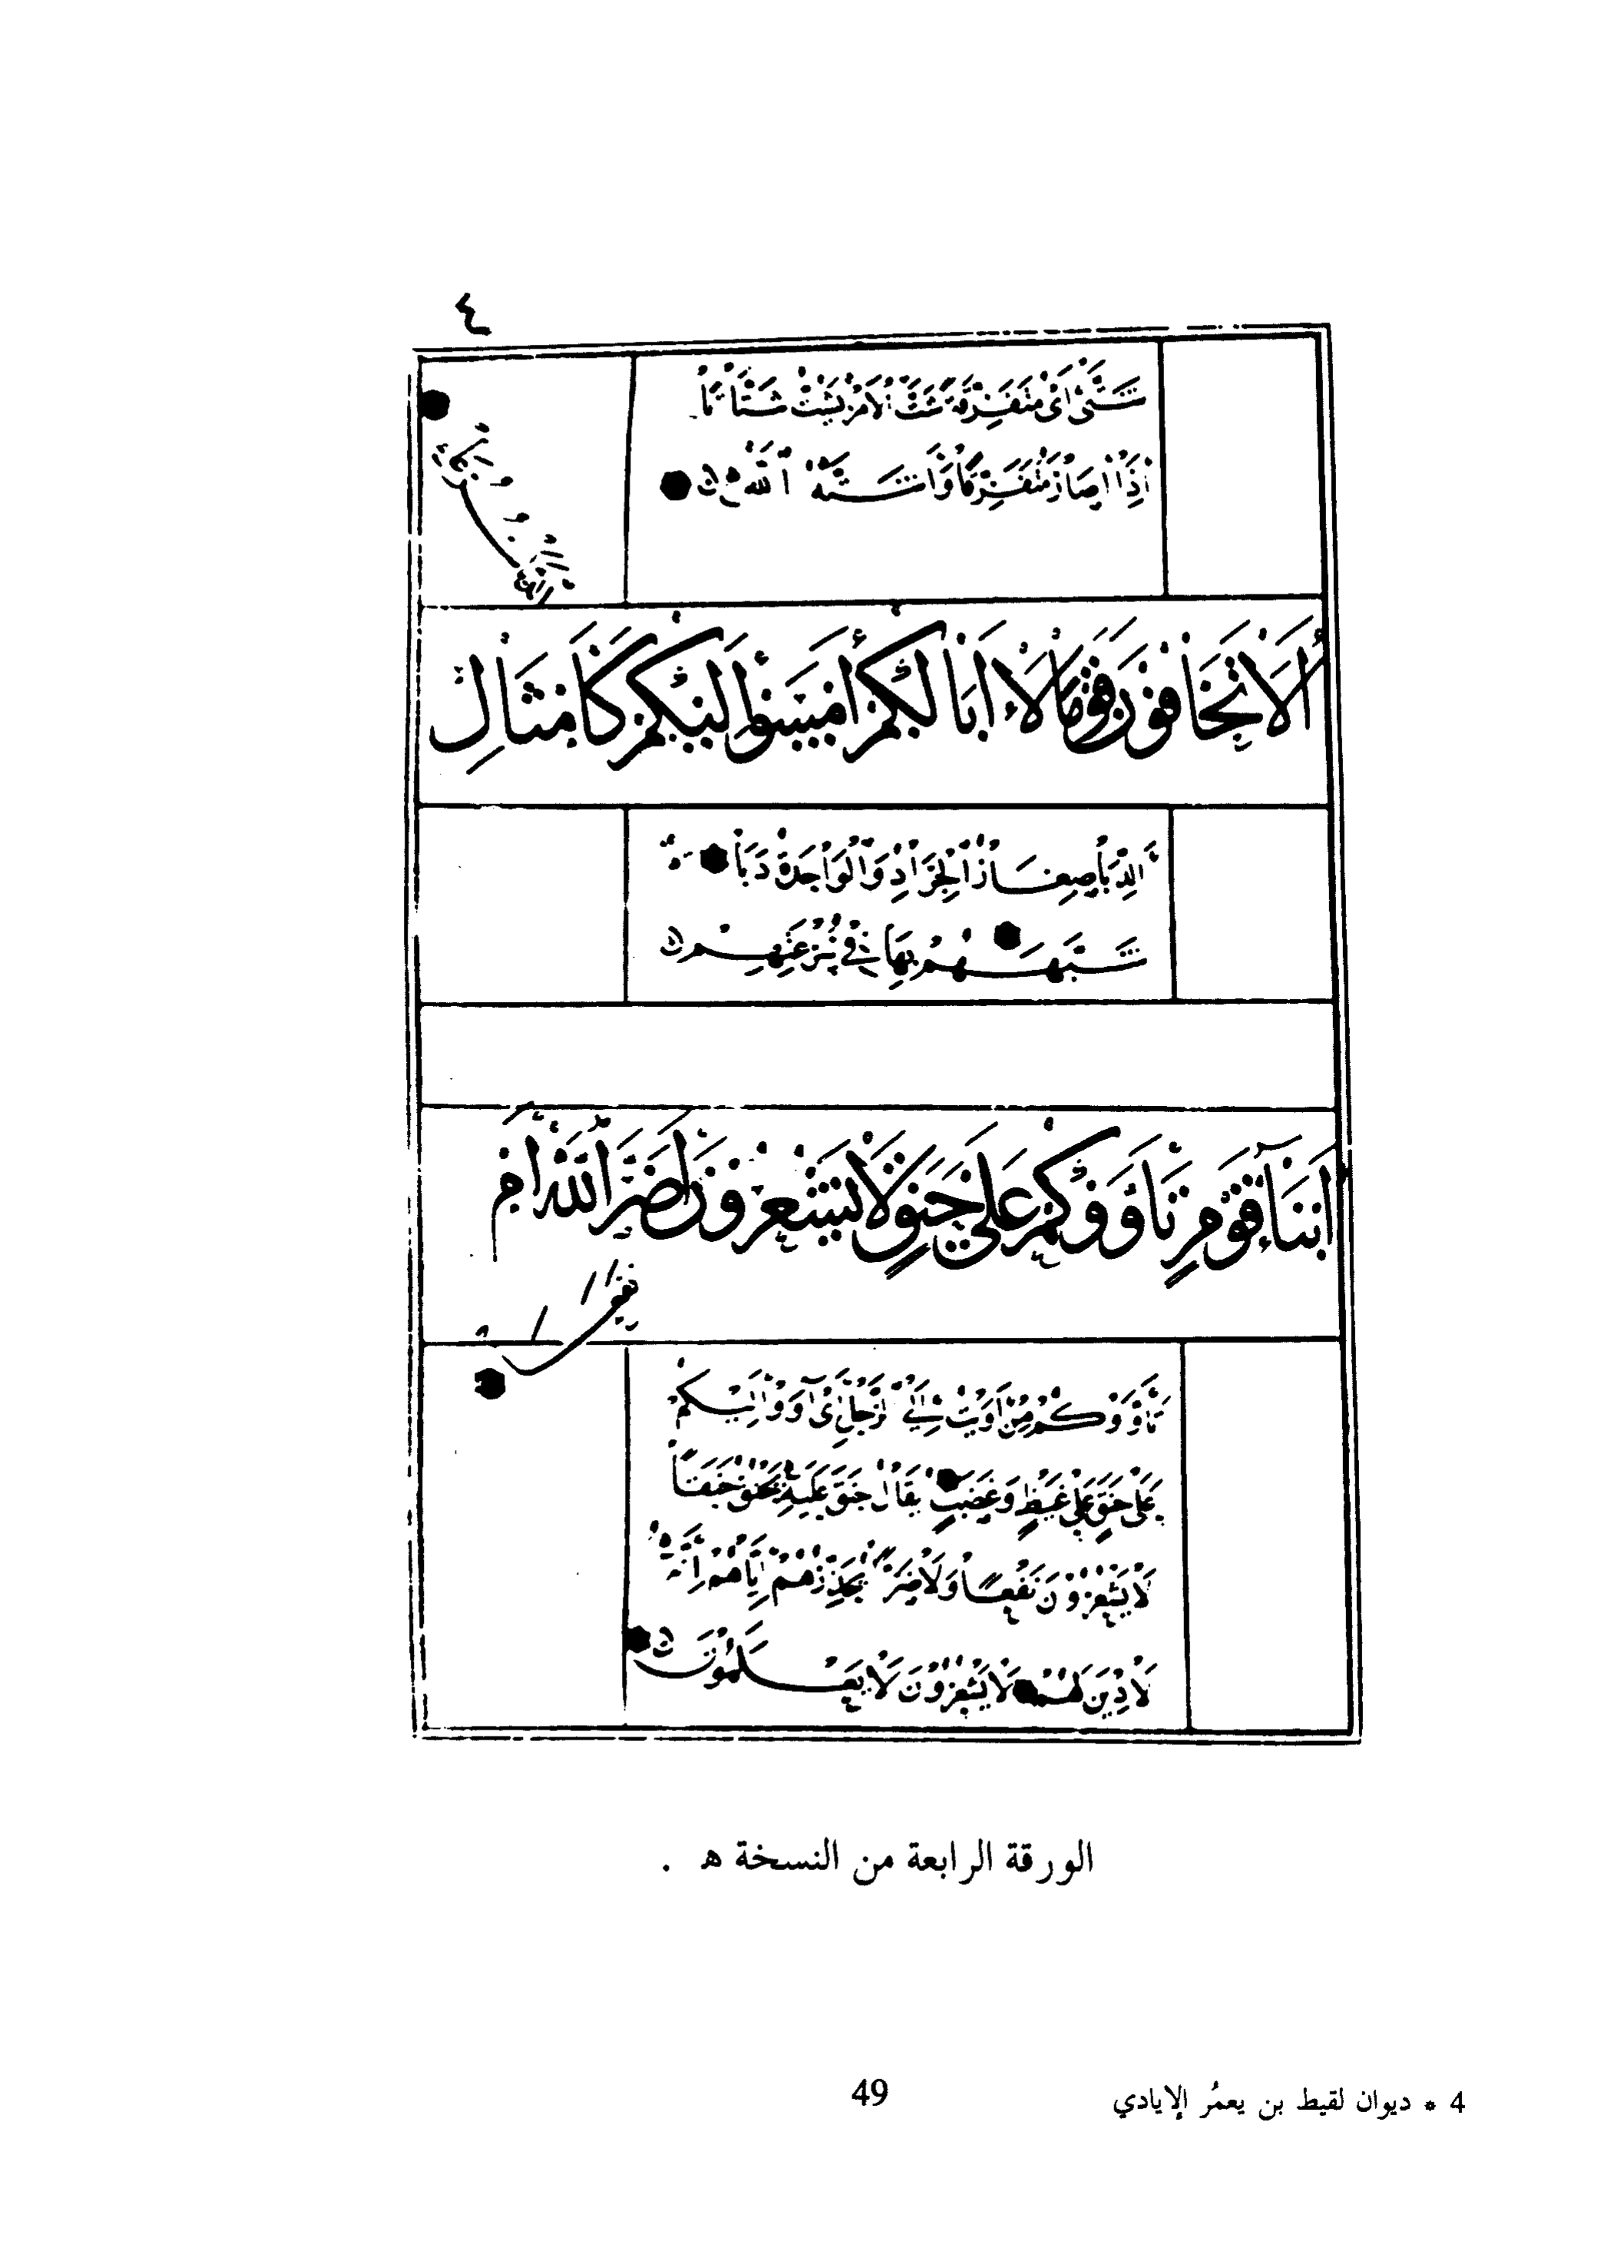 ٤
شَتَّى أَيْ مُتَفَرِّقَةً شَتَّ الأَمْرُ يَشِتُّ شَتَاتًا
إِذَا صَارَ مُتَفَرِّقًا وَأَشَتَّهُ اللهُ
أَلَا تَخَافُونَ قَوْمًا لَا أَبَا لَكُمْ أَمْسَوْا إِلَيْكُمْ كَأَمْثَالِ
الدَّبَا سِرَعَا
الدَّبَا صِغَارُ الْجَرَادِ وَالْوَاحِدَةُ دَبَاةٌ
شَبَّهَهُمْ بِهَا فِي سُرْعَتِهِمْ
أَبْنَاءُ قَوْمٍ تَأَوَّوْكُمْ عَلَى حَنَقٍ لَا يَشْعُرُونَ أَضَرَّ اللهُ أَمْ
نَفَعَا
تَأَوَّوْكُمْ مِنْ أَوَيْتُ إِلَى الرَّجُلِ أَيْ آوَوْا إِلَيْكُمْ
عَلَى حَنَقٍ عَلَى غَيْظٍ وَغَضَبٍ يُقَالُ حَنِقَ عَلَيْهِ يَحْنَقُ حَنَقًا
لَا يَشْعُرُونَ نَفْعًا وَلَا ضَرًّا يُحَذِّرُهُمْ إِيَّاهُمْ أَنَّهُ
لَا دِينَ لَهُمْ لَا يَشْعُرُونَ لَا يَعْلَمُونَ
الورقة الرابعة من النسخة هـ .
49
4 * ديوان لقيط بن يعمُر الإيادي